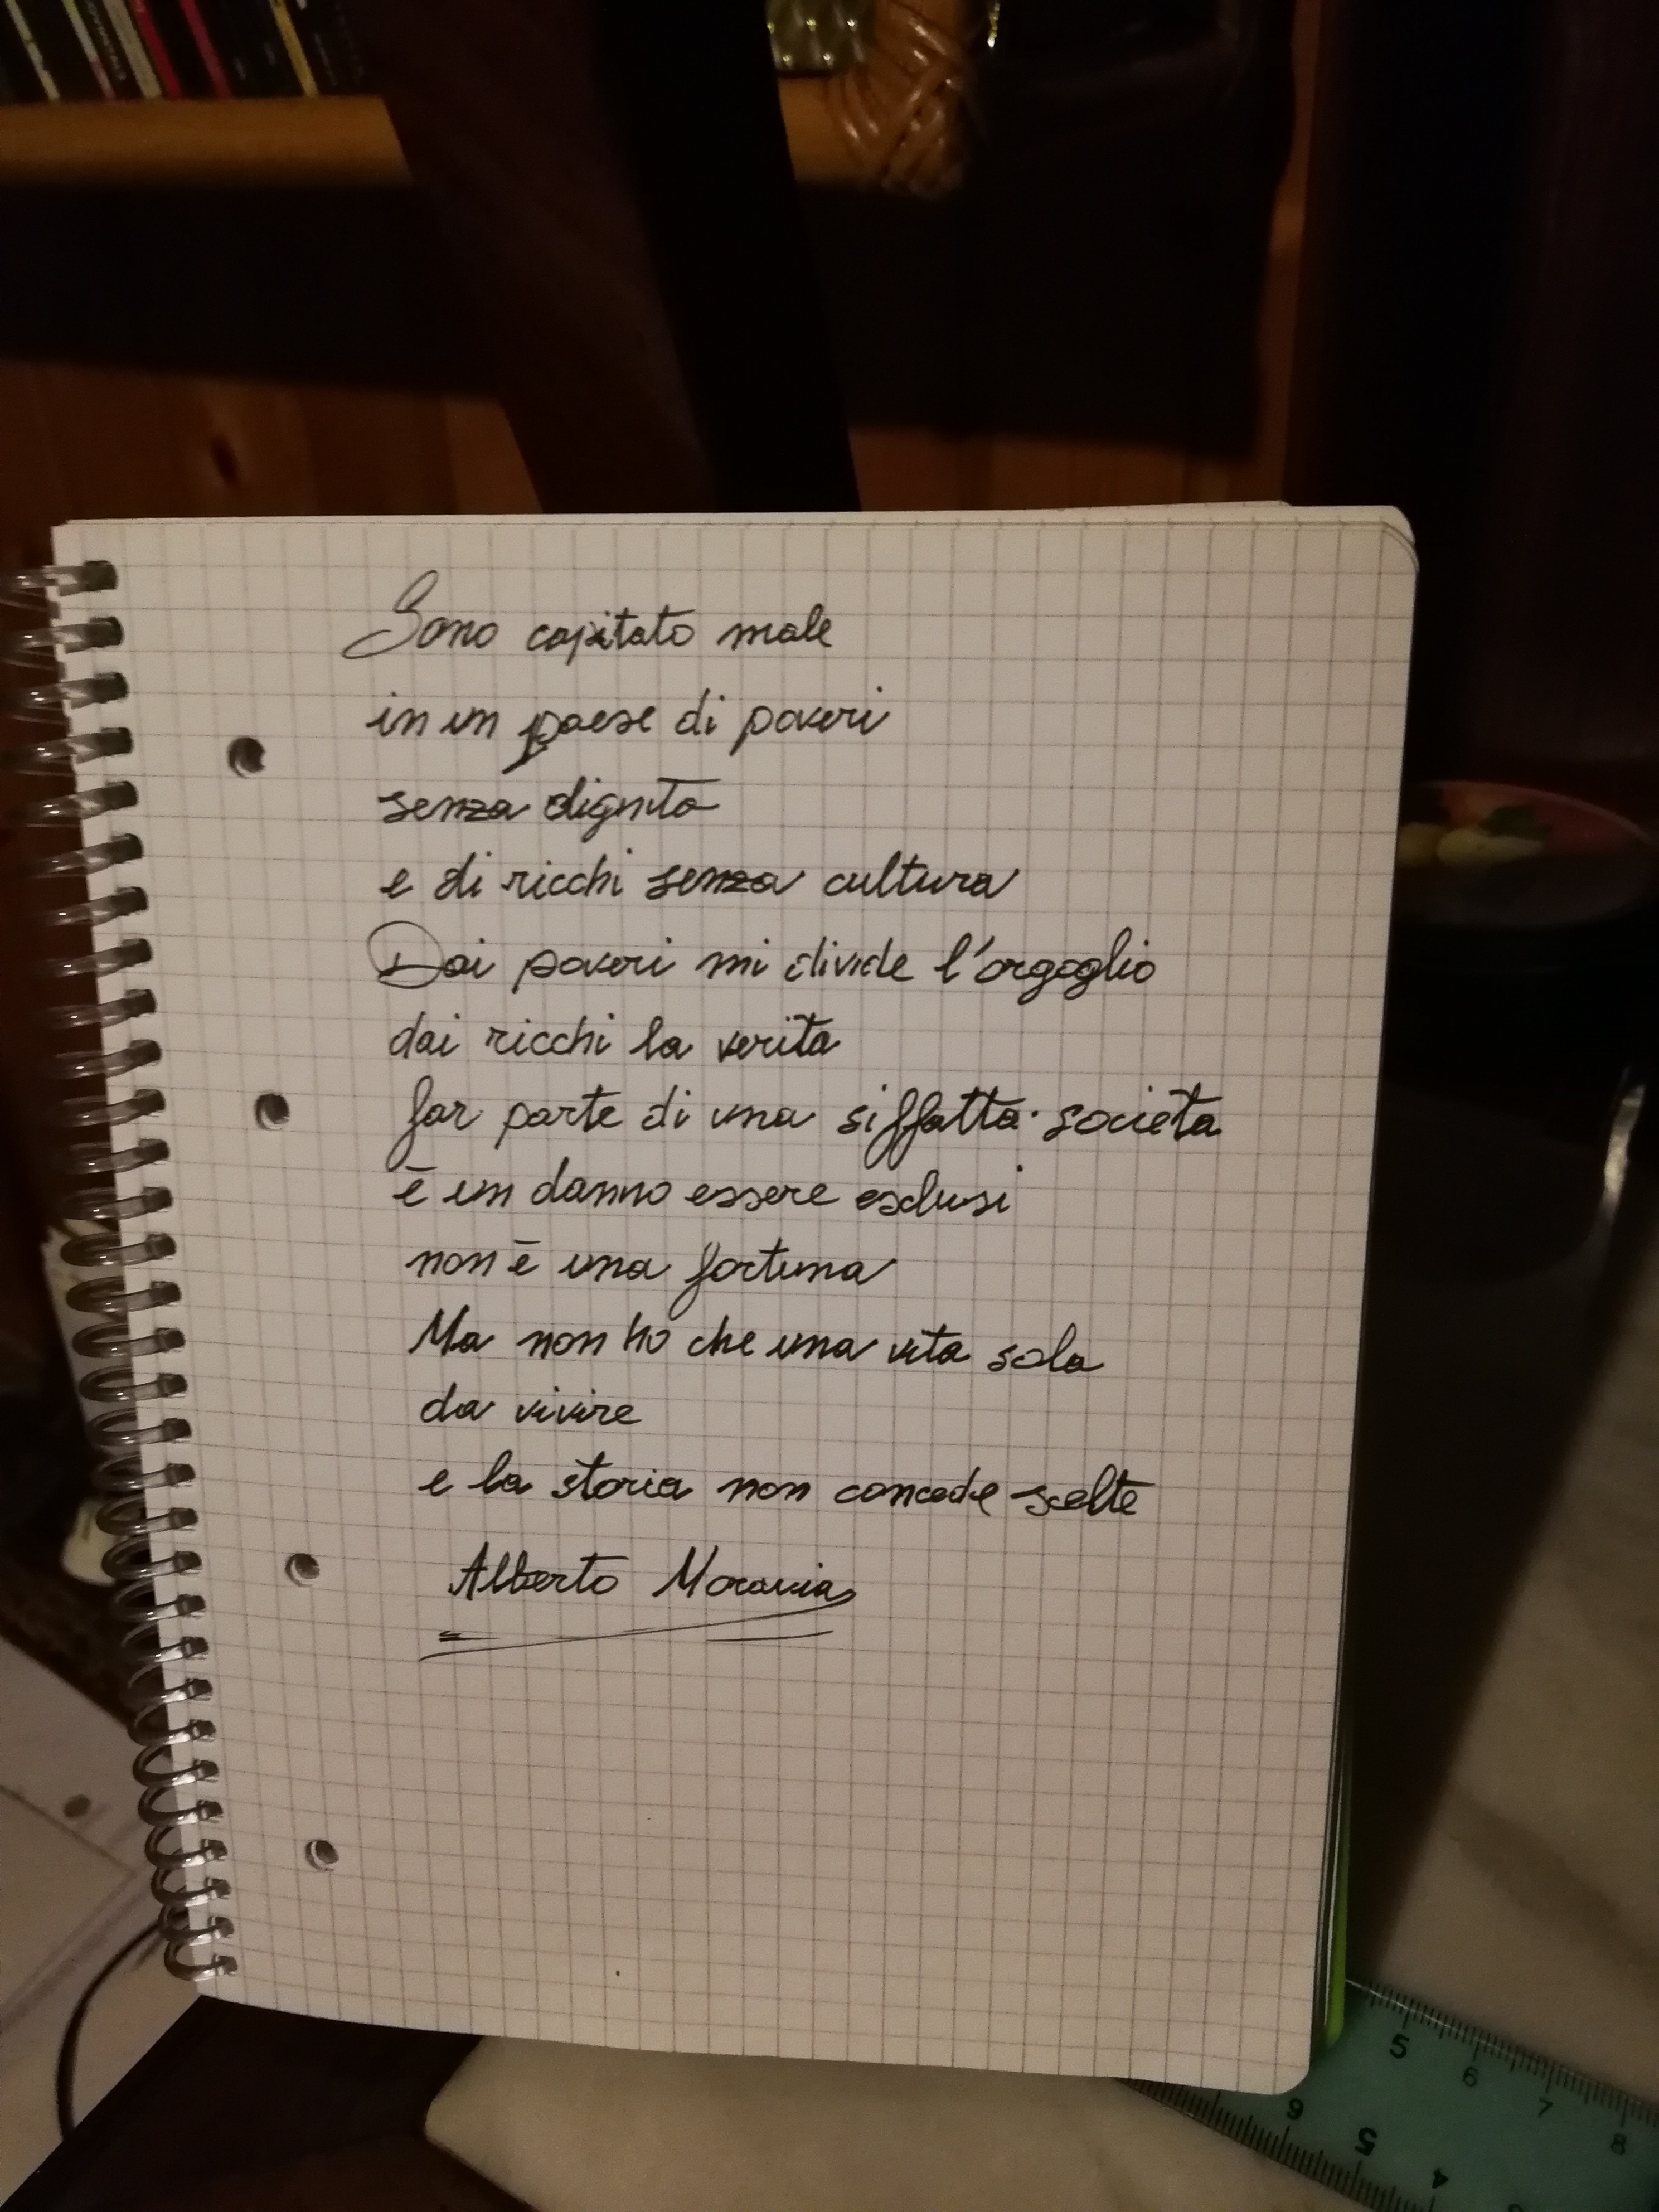 Sono capitato male
in un paese di poveri
senza dignità
e di ricchi senza cultura
Dai poveri mi divide l'orgoglio
dai ricchi la verità
far parte di una siffatta società
è un danno essere esclusi
non è una fortuna
Ma non ho che una vita sola
da vivire
e la storia non concede scelte
Alberto Moravia
5
6
7
8
6
5
4